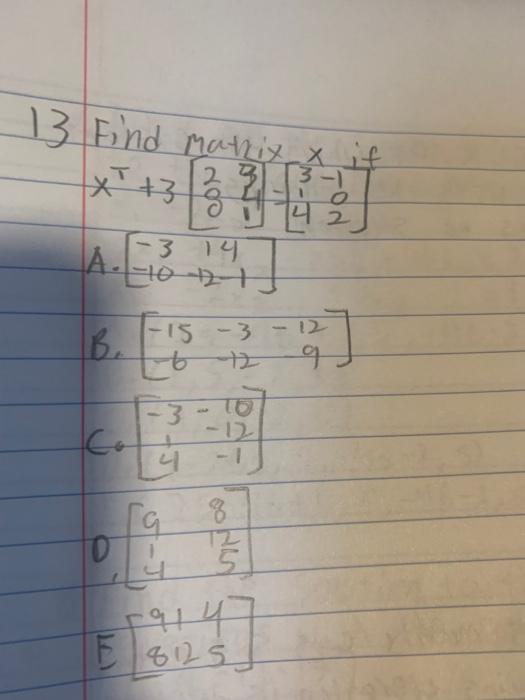 13 Find matrix x if
x^T + 3 [2 3 = [3 -1
0 4 1 0
0 1] 4 2]
A. [-3 1 4
-10 -12 -1]
B. [-15 -3 -12
-6 -12 9]
C. [-3 -10
1 -12
4 -1]
D. [9 8
1 12
4 5]
E [9 1 4
8 12 5]